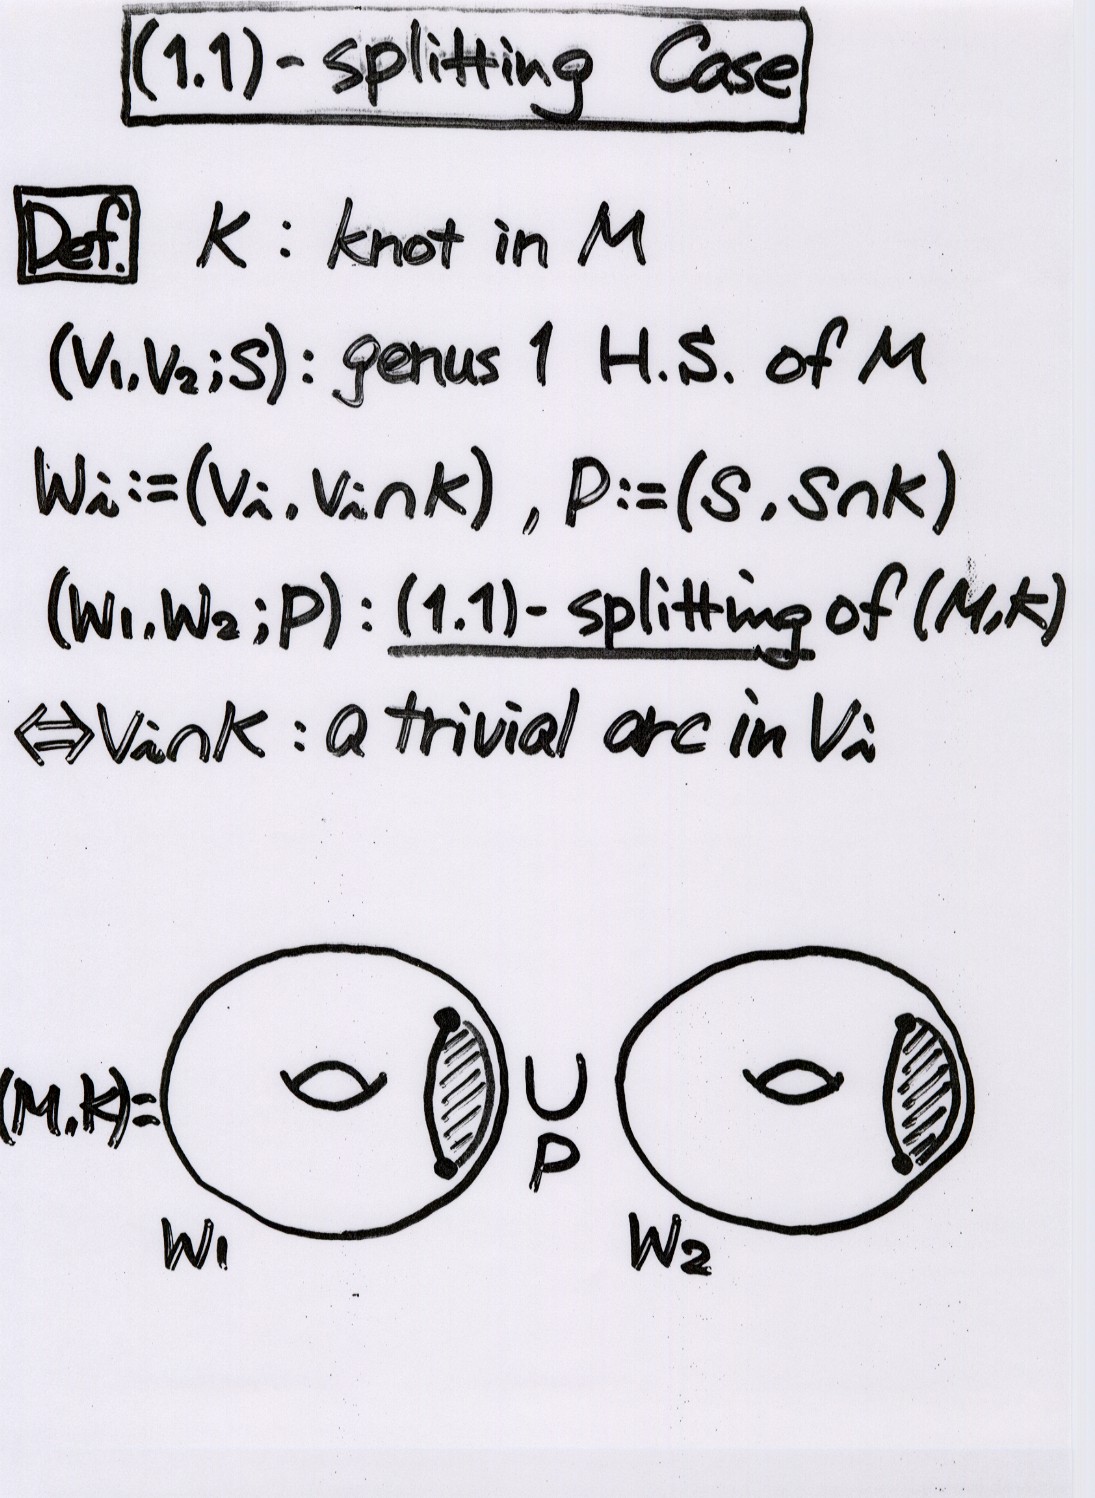 (1.1)-splitting Case
Def. K : knot in M
(V₁.V₂;S) : genus 1 H.S. of M
Wᵢ:=(Vᵢ.Vᵢ∩K), P:=(S.S∩K)
(W₁.W₂;P) : (1.1)-splitting of (M,K)
⇔Vᵢ∩K : a trivial arc in Vᵢ
(M.K)= ∪
P
W₁ W₂